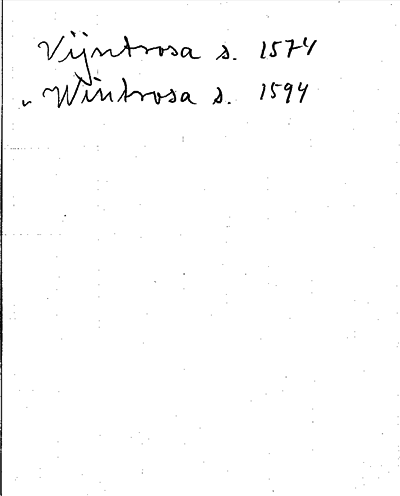 Vijntrosa s. 1574
" Wintrosa s. 1594